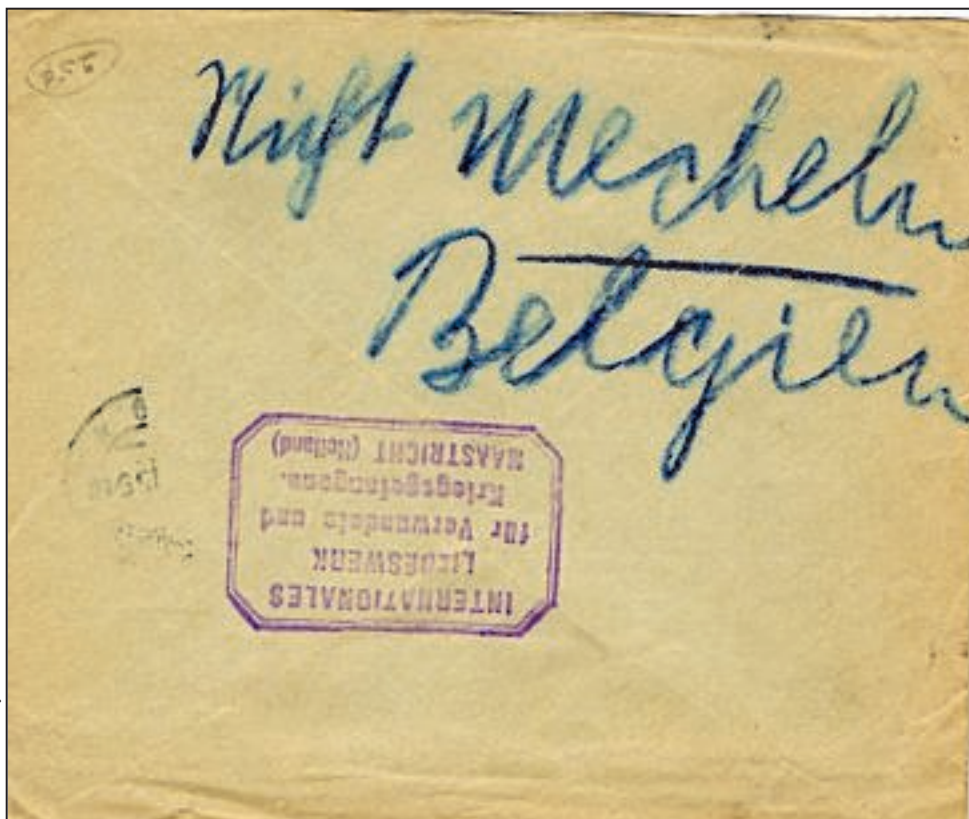 Nicht Mecheln
Belgien
INTERNATIONALES
LIEBESWERK
für Verwundete und
Kriegsgefangene.
MAASTRICHT (Holland)